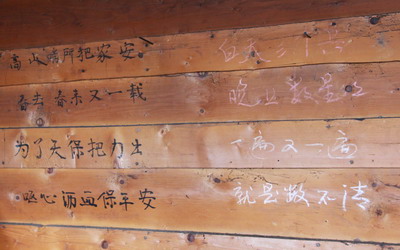 高山哨所把家安 白天三个点
春去春来又一载 晚上数星
为了天保把力出 一遍又一遍
呕心沥血保平安 就是数不清